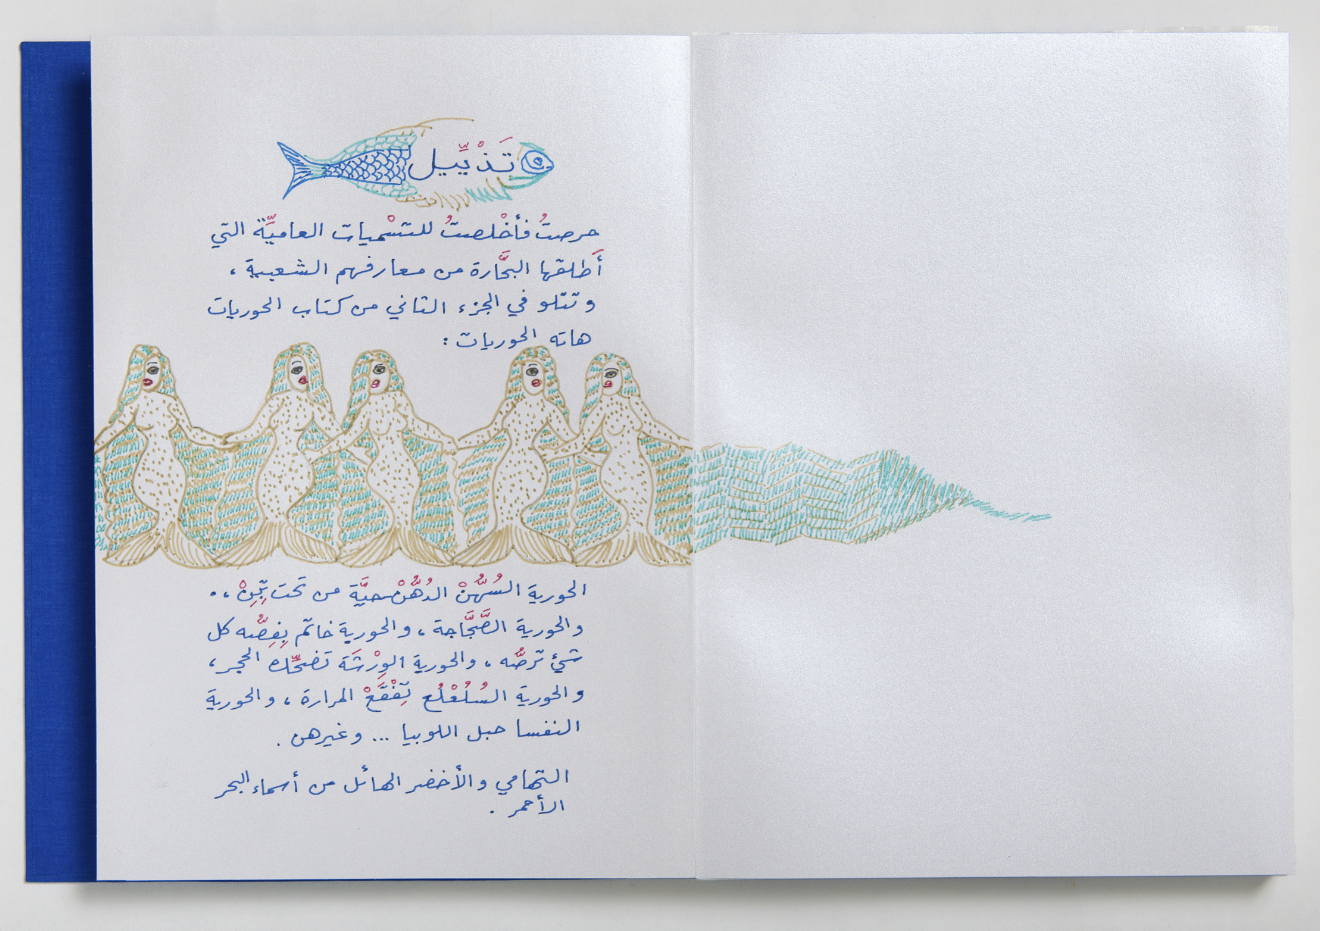 تذييل
حرصتُ فأخْلصتُ للتسْميات العاميّة التي
أَطلقها البحَّارة من معارفهم الشعبية ،
و تتلو في الجزء الثاني من كتاب الحوريات
هاته الحوريات :
الحورية السُهُّنْ الدُهُّنْ حيَّة من تَحت تِبِنْ ، .
والحورية الصَّجَّاجة ، والحورية خاتم بِفِصُّه كل
شئ ترصُّه ، والحورية الوِرْشَة تضحّك الحجر ،
والحورية السُلُعْلُع تِفْقَعْ المرارة ، والحورية
النفسا حبل اللوبيا ... وغيرهن .
التهامي والأخضر الهائل من أسماء البحر
الأحمر .